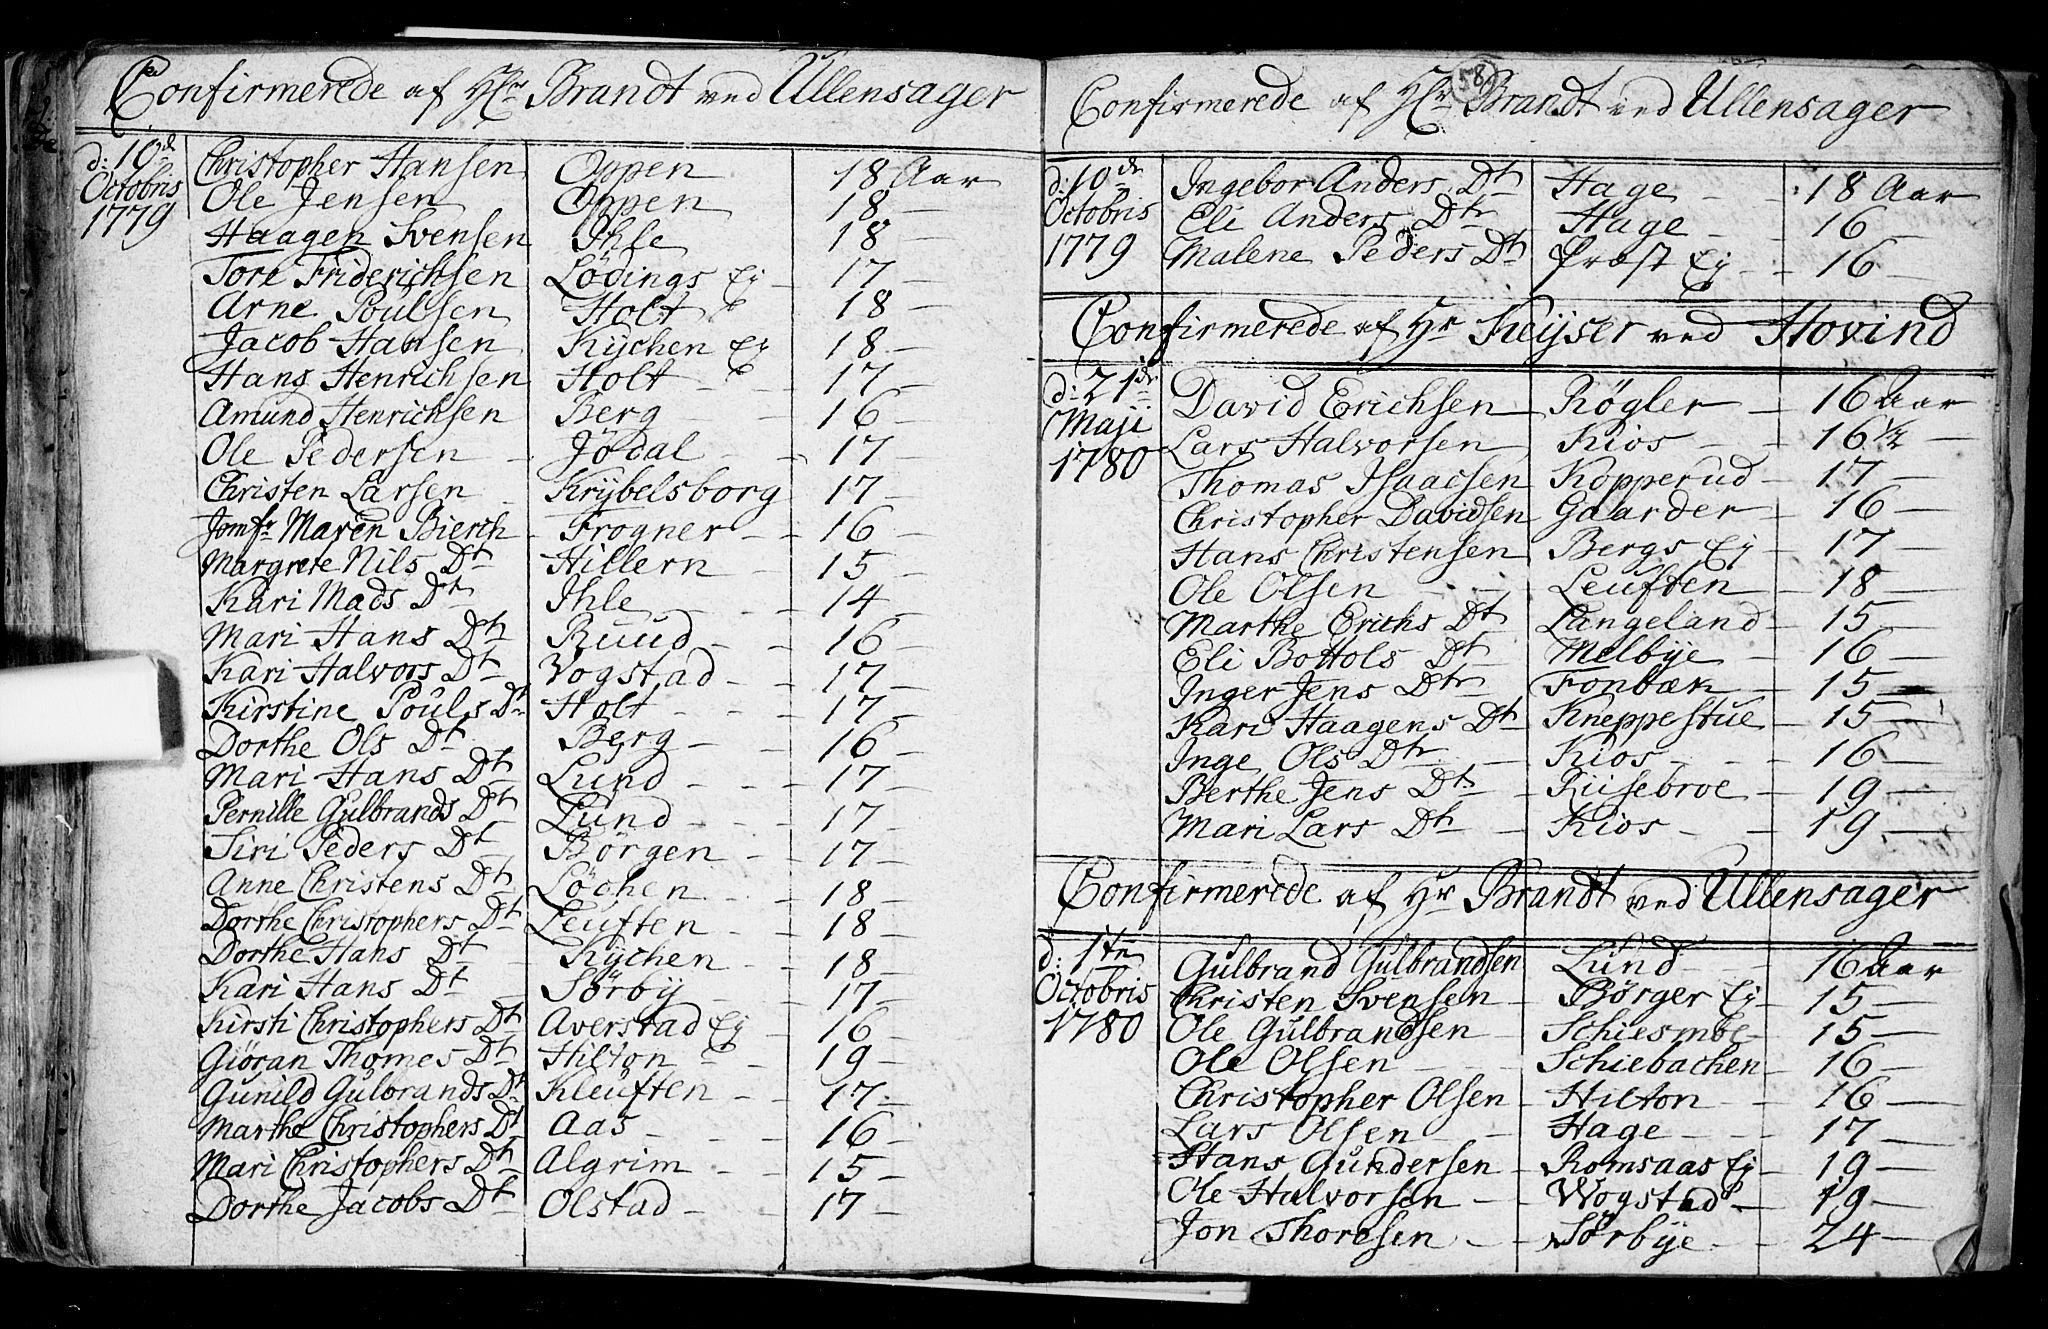 Confirmerede af Hr Brandt ved Ullensager
d: 10de Octobris 1779
Christopher Hansen Oppen 18 Aar
Ole Jensen Oppen 18 —
Haagen Svensen Ihle 18 —
Tore Friderichsen Lödings Ej 17 —
Arne Poulsen Holt 18 —
Jacob Hansen Kÿchen Ej 18 —
Hans Henrichsen Holt 17 —
Amund Henrichsen Berg 16 —
Ole Pedersen Jödal 17 —
Christen Larsen Krÿbelsborg 17 —
Jomfr Maren Bierch Frogner 16 —
Margrete Nils Dtr Hillern 15 —
Kari Mads Dtr Ihle 14 —
Mari Hans Dtr Ruud 16 —
Kari Halvors Dtr Vogstad 17 —
Kirstine Pouls Dtr Holt 17 —
Dorthe Ols Dtr Berg 16 —
Mari Hans Dtr Lund 17 —
Pernille Gulbrands Dtr Lund 17 —
Siri Peders Dtr Börgen 17 —
Anne Christens Dtr Löchen 18 —
Dorthe Christophers Dtr Leuften 18 —
Dorthe Hans Dtr Kÿchen 18 —
Kari Hans Dtr Sörbÿ 17 —
Kirsti Christophers Dtr Averstad Ej 16 —
Giöran Thomes Dtr Hilton 19 —
Gunild Gulbrands Dtr Kleuften 17 —
Marthe Christophers Dtr Aas 16 —
Mari Christophers Dtr Algrim 15 —
Dorthe Jacobs Dtr Olstad 17 —
58
Confirmerede af Hr Brandt ved Ullensager
d: 10de Octobris 1779
Ingebor Anders Dtr Hage 18 Aar
Eli Anders Dtr Hage 16 —
Malene Peders Dtr Præst Ej 16 —
Confirmerede af Hr Keÿser ved Hovind
d: 21de Maji 1780
David Erichsen Rögler 16 Aar
Lars Halvorsen Kios 16 1/2 —
Thomas Isaacsen Kopperud 17 —
Christopher Davidsen Gaarder 16 —
Hans Christensen Bergs Ej 17 —
Ole Olsen Leuften 18 —
Marthe Erichs Dtr Langeland 15 —
Eli Bottols Dtr Melbÿe 16 —
Inger Jens Dtr Fonbæk 15 —
Kari Haagens Dtr Kneppestue 15 —
Inge Ols Dtr Kios 16 —
Berthe Jens Dtr Riisebroe 19 —
Mari Lars Dtr Kios 19 —
Confirmerede af Hr Brandt ved Ullensager
d: 1te Octobris 1780
Gulbrand Gulbrandsen Lund 16 Aar
Christen Svensen Börger Ej 15 —
Ole Gulbrandsen Schiesmoe 15 —
Ole Olsen Schiebachen 16 —
Christopher Olsen Hilton 16 —
Lars Olsen Hage 17 —
Hans Gundersen Romsaas Ej 19 —
Ole Halvorsen Wogstad 19 —
Jon Thoresen Sörbÿe 24 —